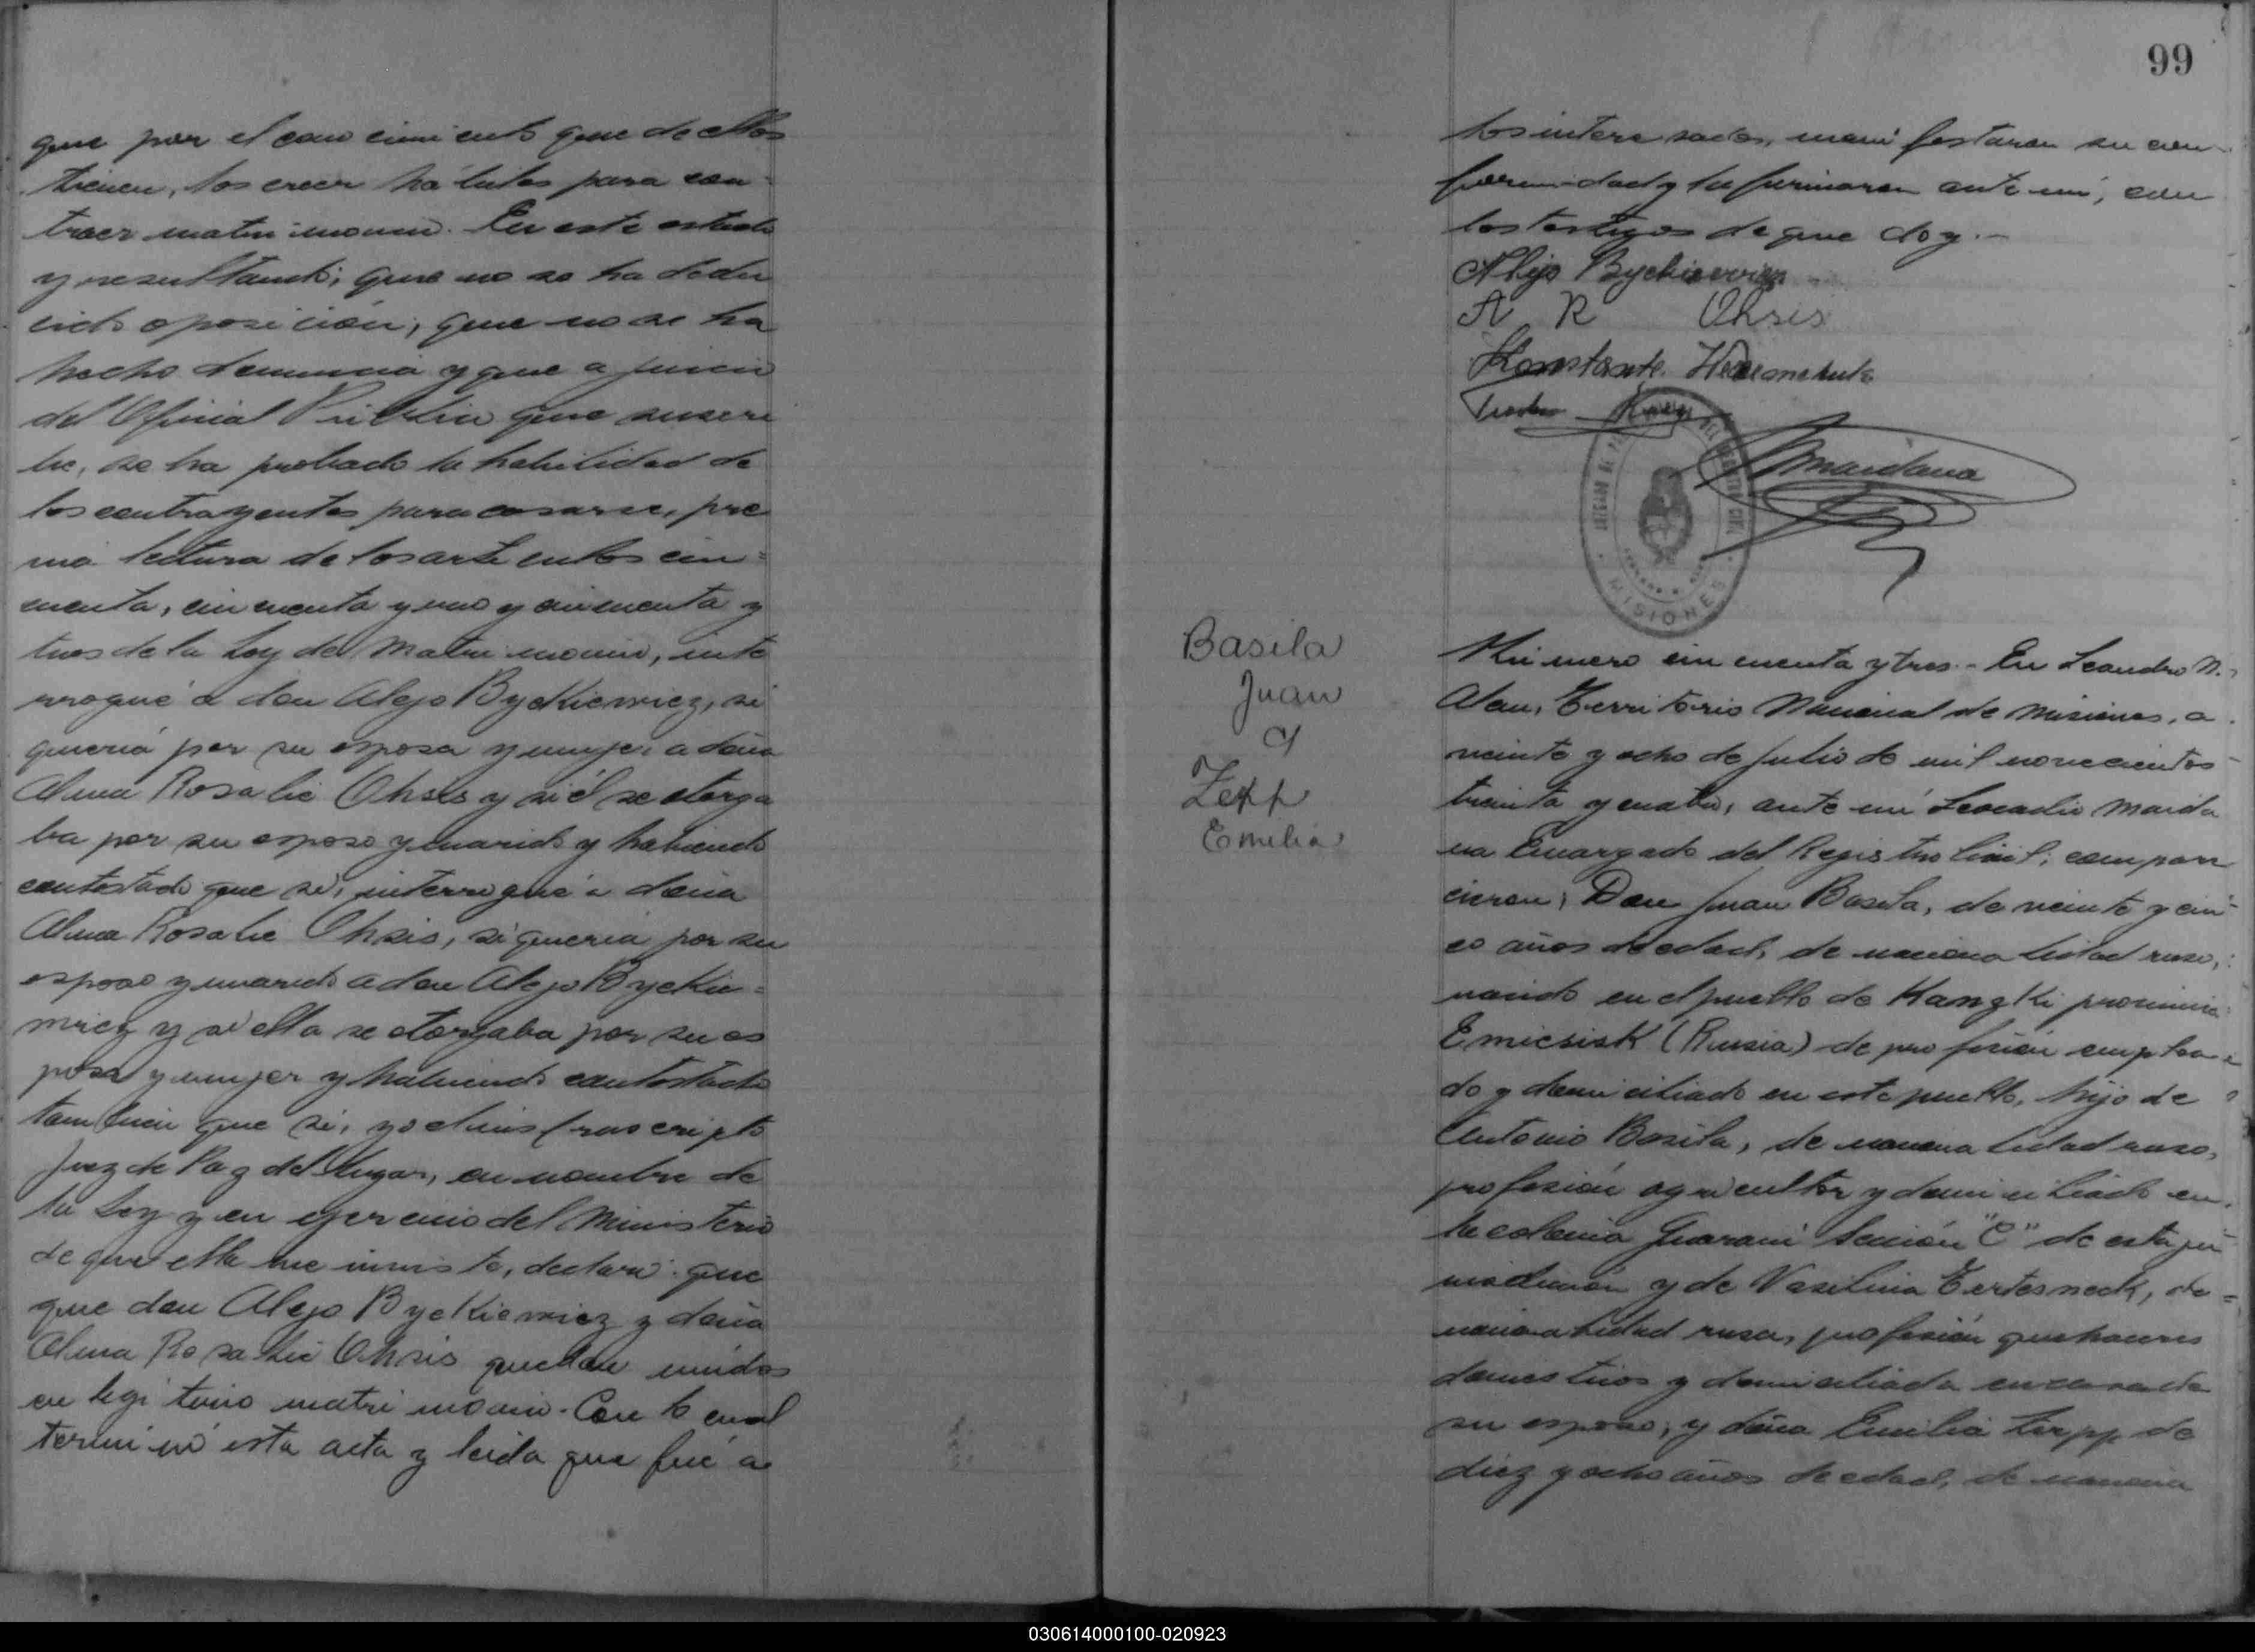 que por el conocimiento que de ellos
tienen, los creen hábiles para con-
traer matrimonio. En este estado
y resultando; que no se ha dedu
cido oposición; que no se ha
hecho denuncia y que a juicio
del Oficial Público que suscri
be, se ha probado la habilidad de
los contrayentes para casarse, pre
via lectura de los artículos cin=
cuenta, cincuenta y uno y cincuenta y
tres de la Ley de Matrimonio, inte
rrogué a don Alejo Byckiewicz, si
quería por su esposa y mujer a doña
Alma Rosalie Ohsis y si él se otorga
ba por su esposo y marido y habiendo
contestado que sí, interrogué a doña
Alma Rosalie Ohsis, si quería por su
esposo y marido a don Alejo Byckie=
wicz y si ella se otorgaba por su es
posa y mujer y habiendo contestado
también que sí, yo el infrascripto
Juez de Paz del lugar, en nombre de
la Ley y en ejercicio del Ministerio
de que ella me inviste, declaré que
que don Alejo Byckiewicz y doña
Alma Rosalie Ohsis quedan unidos
en legítimo matrimonio. Con lo cual
terminó esta acta y leída que fué a
99
los interesados, manifestaron su con-
formidad y la firmaron ante mí, con
los testigos de que doy.-
Alejo Byckiewicz
A R Ohsis
Konstante
Maidana
MISIONES
Basila
Juan
y
Zepp
Emilia
Número cincuenta y tres.- En Leandro N.
Alem, Territorio Nacional de Misiones, a
veinte y ocho de Julio de mil novecientos
treinta y cuatro, ante mí Leocadio Maida
na Encargado del Registro Civil, compare
cieron; Don Juan Basila, de veinte y cin-
co años de edad, de nacionalidad ruso,
nacido en el pueblo de Kangki provincia
Emicsisk (Rusia) de profesión emplea-
do y domiciliado en este pueblo, hijo de
Antonio Basila, de nacionalidad ruso,
profesión agricultor y domiciliado en
la colonia Guaraní Sección "C" de esta ju-
risdicción y de Vasilina Tertesneck, de=
nacionalidad rusa, profesión quehaceres
domésticos y domiciliada en casa de
su esposo; y doña Emilia Zepp de
diez y ocho años de edad, de naciona
030614000100-020923